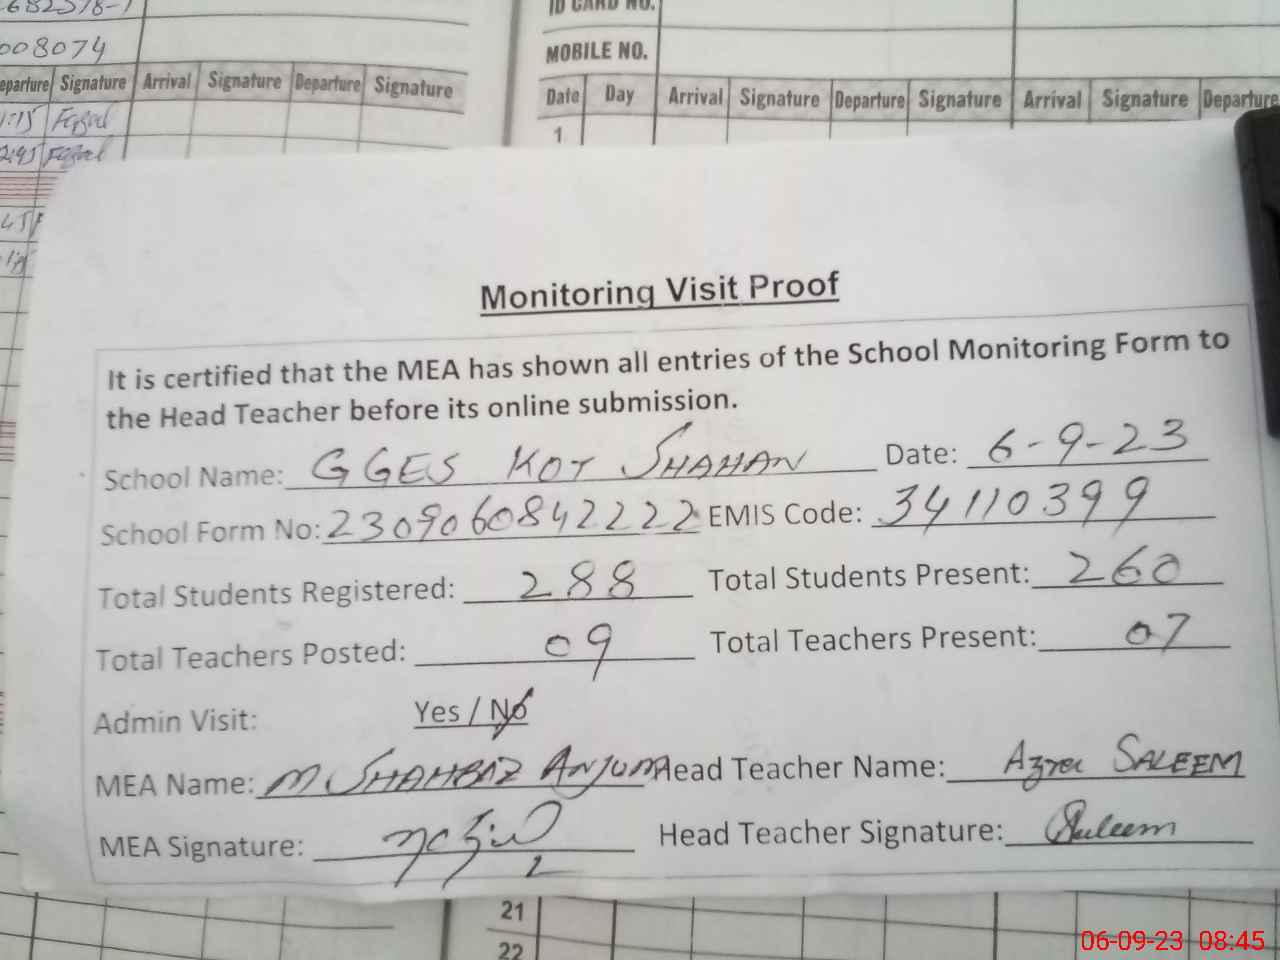 008074
ID CARD NO.
MOBILE NO.
Departure Signature Arrival Signature Departure Signature
Date Day Arrival Signature Departure Signature Arrival Signature Departure
1
Monitoring Visit Proof
It is certified that the MEA has shown all entries of the School Monitoring Form to
the Head Teacher before its online submission.
School Name: GGES KOT SHAHAN Date: 6-9-23
School Form No: 2309060842222 EMIS Code: 34110399
Total Students Registered: 288 Total Students Present: 260
Total Teachers Posted: 09 Total Teachers Present: 07
Admin Visit: Yes / No
MEA Name: M SHAHBAZ ANJUM Head Teacher Name: Azra SALEEM
MEA Signature: Head Teacher Signature: Saleem
21
22
06-09-23 08:45